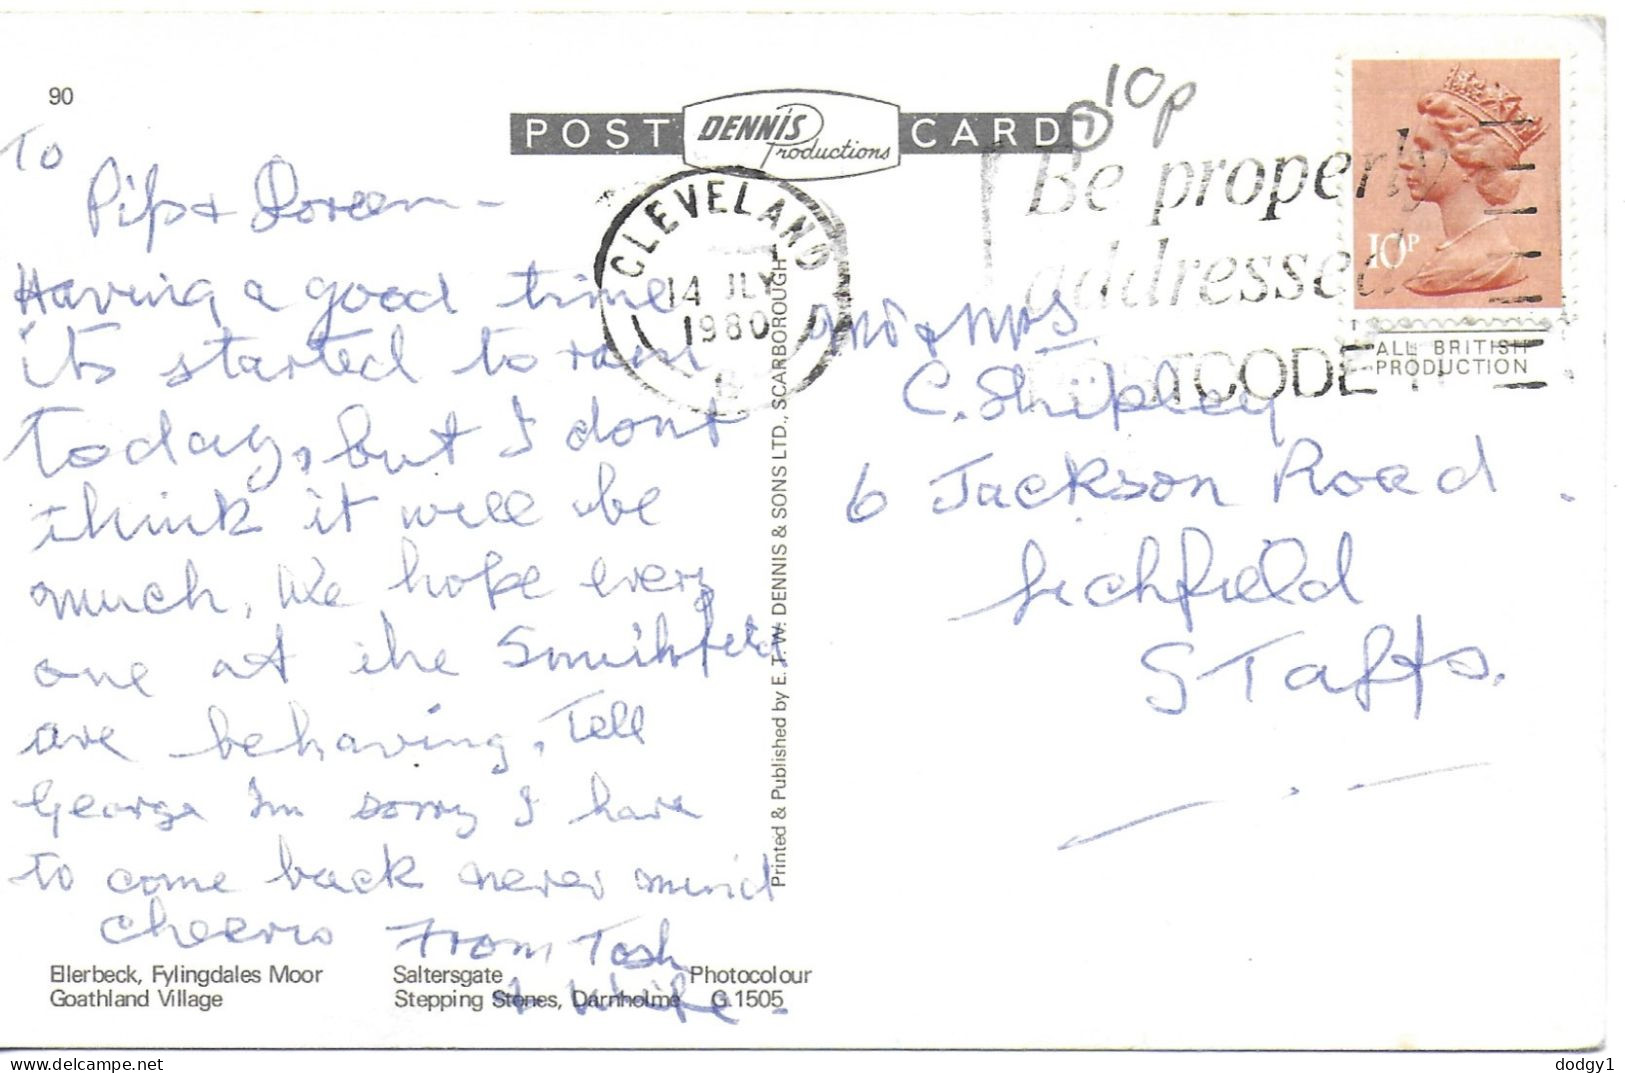 90
POST DENNIS Productions CARD
10p
CLEVELAND
14 JLY
1980
Be properly
addressed
POSTCODE
10P
ALL BRITISH
PRODUCTION
To
Pip & Doreen -
Having a good time
its started to rain
Today, but I dont
think it will be
much, We hope every
one at the Smithfield
are behaving, Tell
George Im sorry I have
to come back never mind
cheerio From Tosh
& Wife.
Mr & Mrs
C. Shipley
6 Jackson Road.
Lichfield
STaffs.
Printed & Published by E. T. W. DENNIS & SONS LTD., SCARBOROUGH
Ellerbeck, Fylingdales Moor Saltersgate Photocolour
Goathland Village Stepping Stones, Darnholme G.1505
delcampe.net
dodgy1